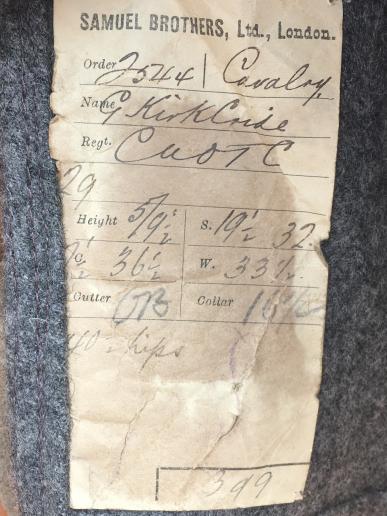 SAMUEL BROTHERS, Ltd., London.
Order 2544 | Cavalry
Name G Kirk
Regt. CUOTC
29
Height 5/9½ S. 19½ 32.
C. 36½ W. 33½.
Cutter Collar 16½
40 hips
399